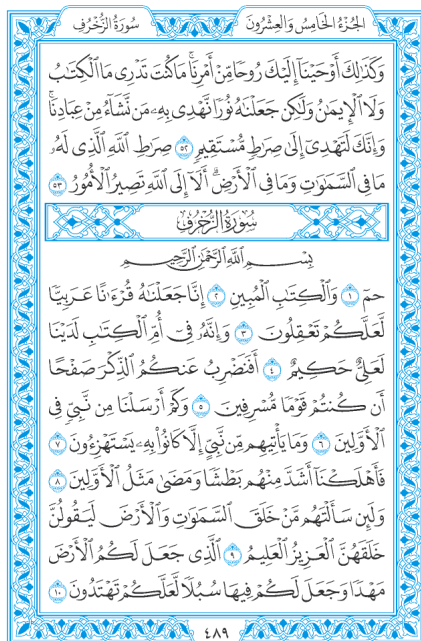 الجزء الخامس والعشرون سورة الزخرف
وَكَذَٰلِكَ أَوْحَيْنَآ إِلَيْكَ رُوحًا مِّنْ أَمْرِنَا ۚ مَا كُنتَ تَدْرِى مَا ٱلْكِتَٰبُ
وَلَا ٱلْإِيمَٰنُ وَلَٰكِن جَعَلْنَٰهُ نُورًا نَّهْدِى بِهِۦ مَن نَّشَآءُ مِنْ عِبَادِنَا ۚ
وَإِنَّكَ لَتَهْدِىٓ إِلَىٰ صِرَٰطٍ مُّسْتَقِيمٍ ٥٢ صِرَٰطِ ٱللَّهِ ٱلَّذِى لَهُۥ
مَا فِى ٱلسَّمَٰوَٰتِ وَمَا فِى ٱلْأَرْضِ ۗ أَلَآ إِلَى ٱللَّهِ تَصِيرُ ٱلْأُمُورُ ٥٣
سورة الزخرف
بِسْمِ ٱللَّهِ ٱلرَّحْمَٰنِ ٱلرَّحِيمِ
حمٓ ١ وَٱلْكِتَٰبِ ٱلْمُبِينِ ٢ إِنَّا جَعَلْنَٰهُ قُرْءَٰنًا عَرَبِيًّا
لَّعَلَّكُمْ تَعْقِلُونَ ٣ وَإِنَّهُۥ فِىٓ أُمِّ ٱلْكِتَٰبِ لَدَيْنَا
لَعَلِىٌّ حَكِيمٌ ٤ أَفَنَضْرِبُ عَنكُمُ ٱلذِّكْرَ صَفْحًا
أَن كُنتُمْ قَوْمًا مُّسْرِفِينَ ٥ وَكَمْ أَرْسَلْنَا مِن نَّبِىٍّ فِى
ٱلْأَوَّلِينَ ٦ وَمَا يَأْتِيهِم مِّن نَّبِىٍّ إِلَّا كَانُوا۟ بِهِۦ يَسْتَهْزِءُونَ ٧
فَأَهْلَكْنَآ أَشَدَّ مِنْهُم بَطْشًا وَمَضَىٰ مَثَلُ ٱلْأَوَّلِينَ ٨
وَلَئِن سَأَلْتَهُم مَّنْ خَلَقَ ٱلسَّمَٰوَٰتِ وَٱلْأَرْضَ لَيَقُولُنَّ
خَلَقَهُنَّ ٱلْعَزِيزُ ٱلْعَلِيمُ ٩ ٱلَّذِى جَعَلَ لَكُمُ ٱلْأَرْضَ
مَهْدًا وَجَعَلَ لَكُمْ فِيهَا سُبُلًا لَّعَلَّكُمْ تَهْتَدُونَ ١٠
٤٨٩